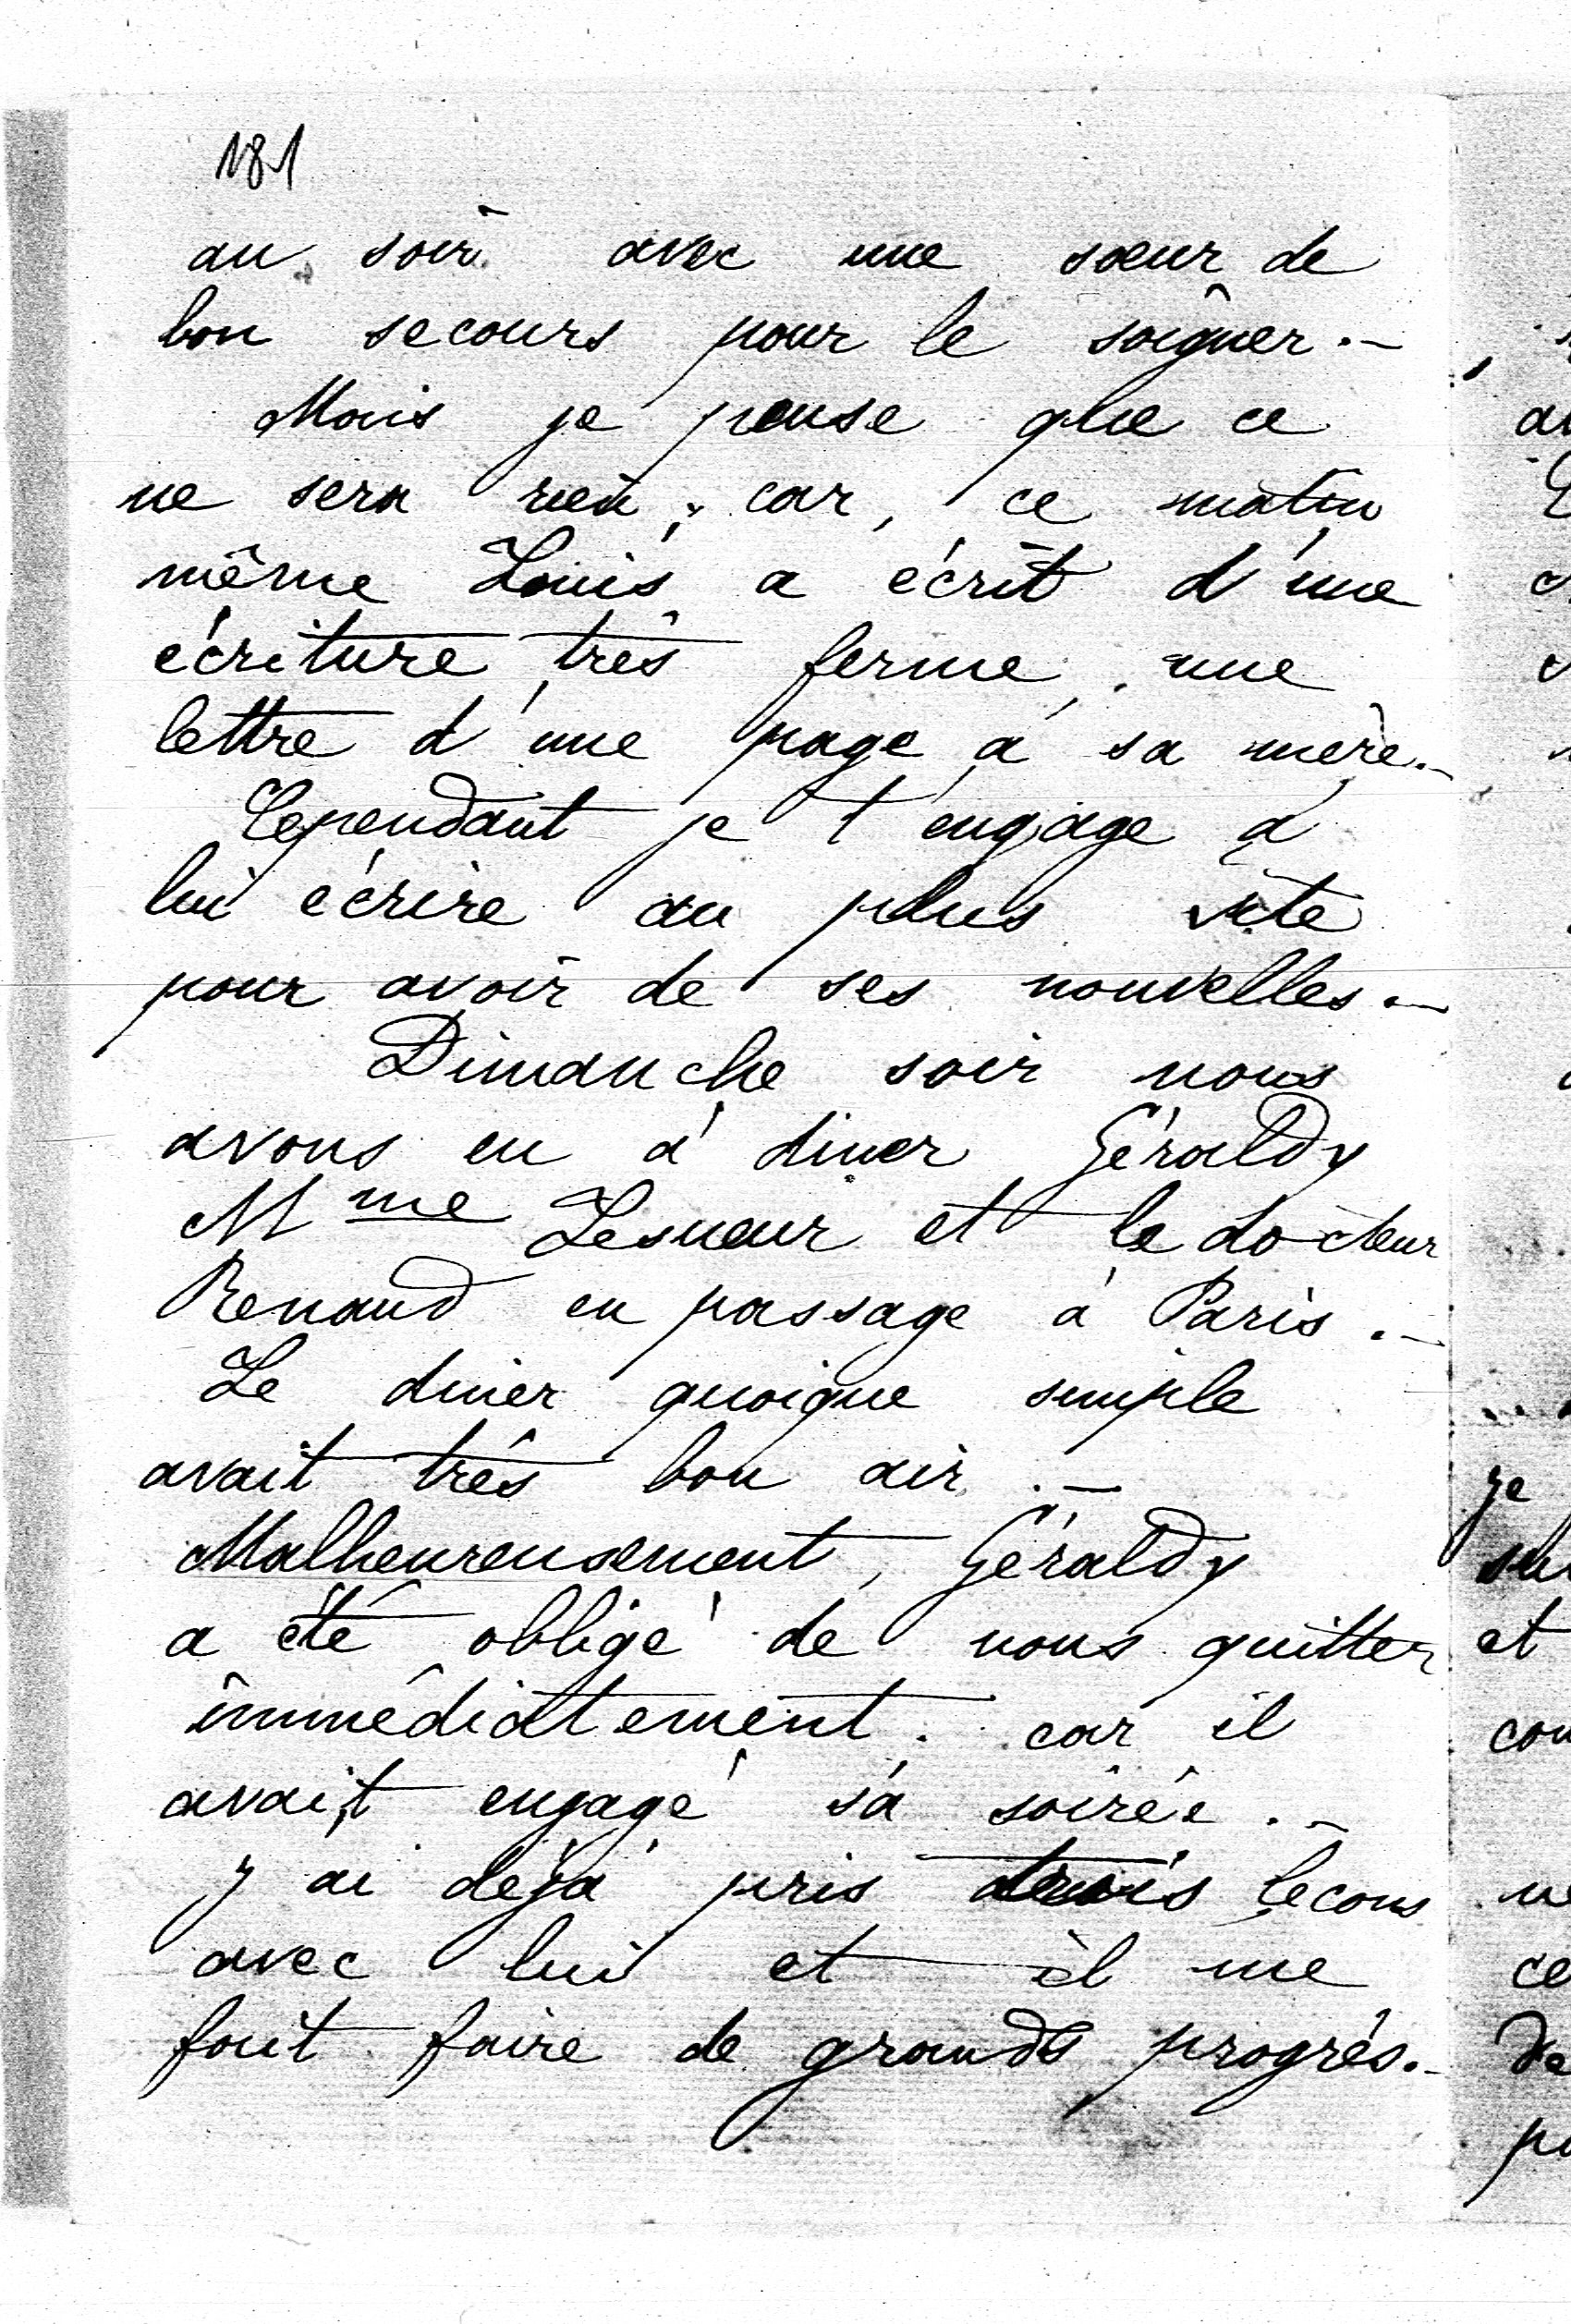 181
au soir avec une sœur de
bon secours pour le soigner.—
Mais je pense que ce
ne sera rien ; car, ce matin
même Louis a écrit d'une
écriture très ferme, une
lettre d'une page à sa mère.—
Cependant je t'engage à
lui écrire au plus vite
pour avoir de ses nouvelles.—
Dimanche soir nous
avons eu à diner Géraldy
Mme Lesueur et le docteur
Renaud en passage à Paris.—
Le diner quoique simple
avait très bon air.—
Malheureusement, Géraldy
a été obligé de nous quitter
immédiatement. car il
avait engagé sa soirée.—
J'ai déjà pris trois leçons
avec lui et il me
fait faire de grands progrès.—